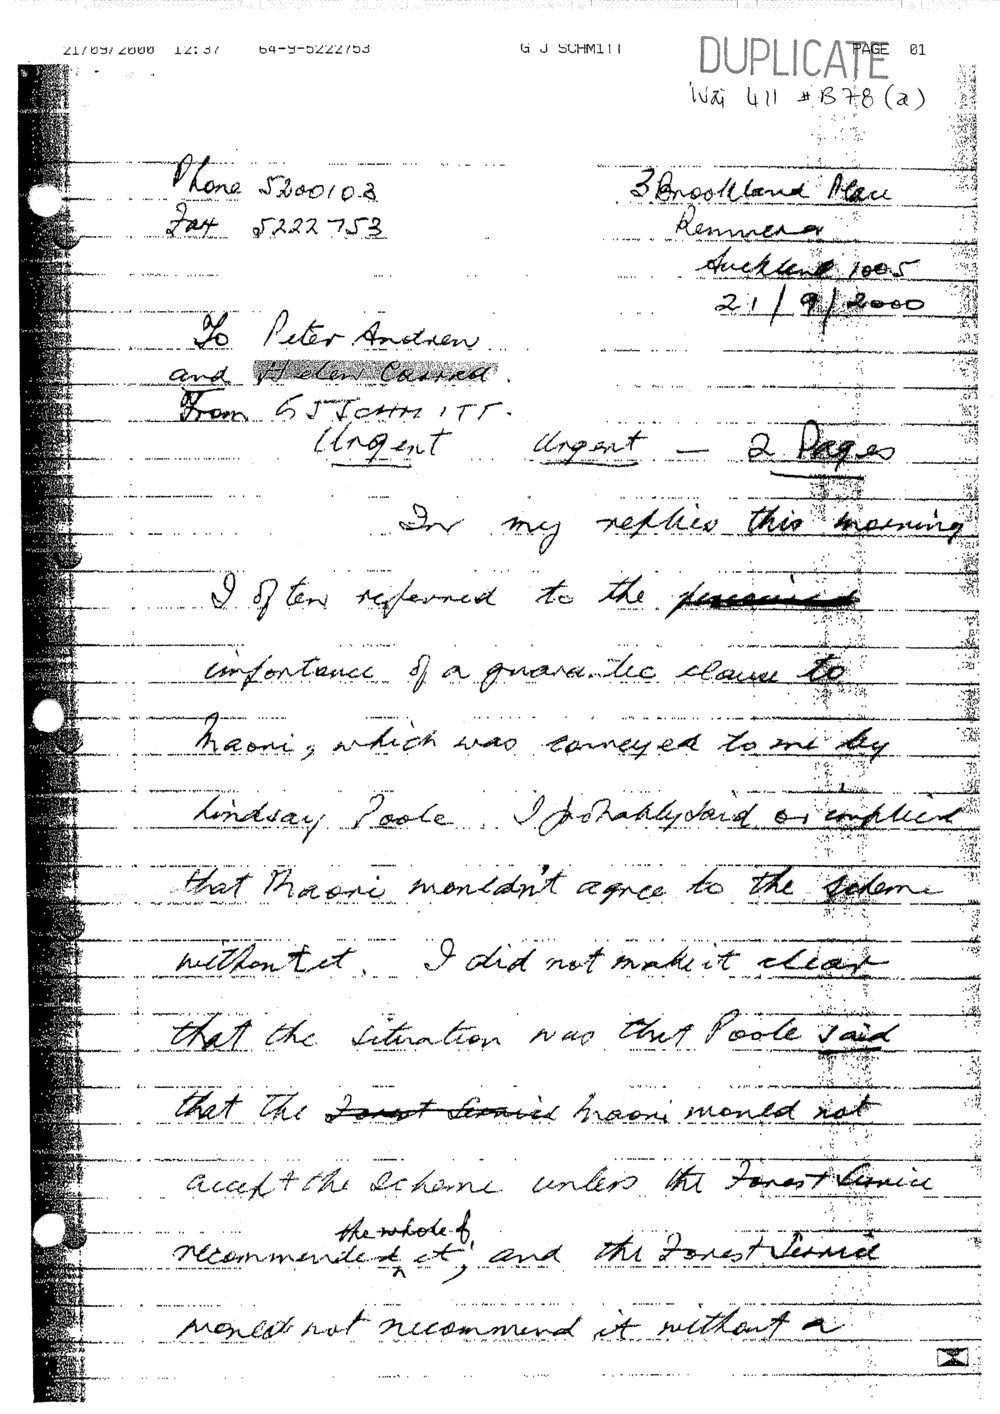 21/09/2000 12:37 64-9-5222753 G J SCHMITT PAGE 01
DUPLICATE
Wai 411 # B78 (a)
Phone 5200103 3 Brookland Place
Fax 5222753 Remuera
Auckland 1005
21/9/2000
To Peter Andrew
and Helen Carrad.
From G J SCHMITT.
Urgent Urgent — 2 Pages
In my replies this morning
I often referred to the
importance of a guarantee clause to
Maori, which was conveyed to me by
Lindsay Poole. I probably said or implied
that Maori wouldn't agree to the scheme
without it. I did not make it clear
that the situation was that Poole said
that the Forest Service Maori would not
accept the scheme unless the Forest Service
the whole of
recommended it, and the Forest Service
would not recommend it without a